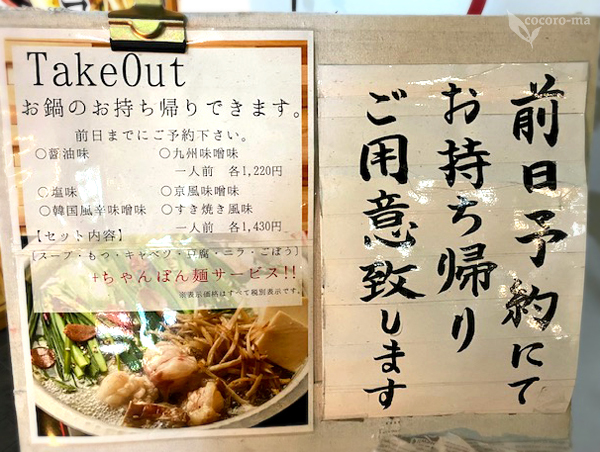 TakeOut
お鍋のお持ち帰りできます。
前日までにご予約下さい。
○醤油味 ○九州味噌味
一人前 各1,220円
○塩味 ○京風味噌味
○韓国風辛味噌味 ○すき焼き風味
一人前 各1,430円
【セット内容】
〔スープ・もつ・キャベツ・豆腐・ニラ・ごぼう〕
+ちゃんぽん麺サービス!!
※表示価格はすべて税別表示です。
前日予約にて
お持ち帰り
ご用意致します
cocoro-ma